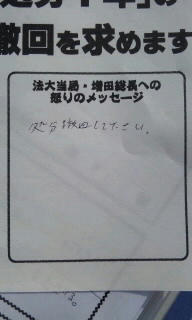 処分千年」の
撤回を求めます
法大当局・増田総長への
怒りのメッセージ
処分撤回して下さい。